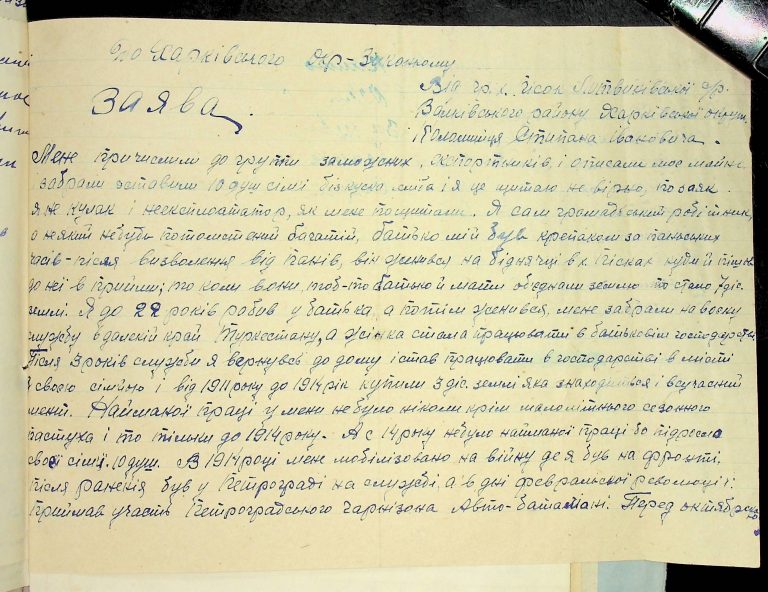 До Харківського Окр-Зіконому
Від гр. х. Пісок Литвинівської с/р.
Валківського району Харківської округи
Коломийця Степана Івановича.
ЗАЯВА.
Мене причислили до групи заможних, експортників, і описали моє майно
і забрали зоставили 10 душ сімї без куска хліба і я це щитаю не вірно, по заяк
я не кулак і неексплоататор, як мене пощитали. Я сам громадський робітник,
а неякий небудь потомствений багатій, батько мій був крепаком за панських
часів - після визволення від панів, він женився на біднячці в х. Пісках куди й пішов
до неї в прийми; то коли вони, тоб-то батько й мати обєднали землю то стало 7 дес.
землі. Я до 22 років робив у батька, а потім женився, мене забрали на воєну
службу в далекій край Туркестану, а жінка стала працювати в батьковім господарстві
Після 3 років служби я вернувсь до дому і став працювати в господарстві в місті
з своєю сімйою і від 1911 року до 1914 рік купили 3 дес. землі яка знаходиться і в сучасний
мент. Найманої праці у мене небуло ніколи крім малолітнього сезонного
пастуха і то тільки до 1914 року. А с 14 року небуло найманої праці бо підросло
своєї сімї. 10 душ. В 1914 році мене мобілізовано на війну де я був на фронті.
після раненія був у Петрограді на службі, а в дні февральської революції:
приймав участь Петроградського гарнізона Авто-баталіані. Перед октябрською